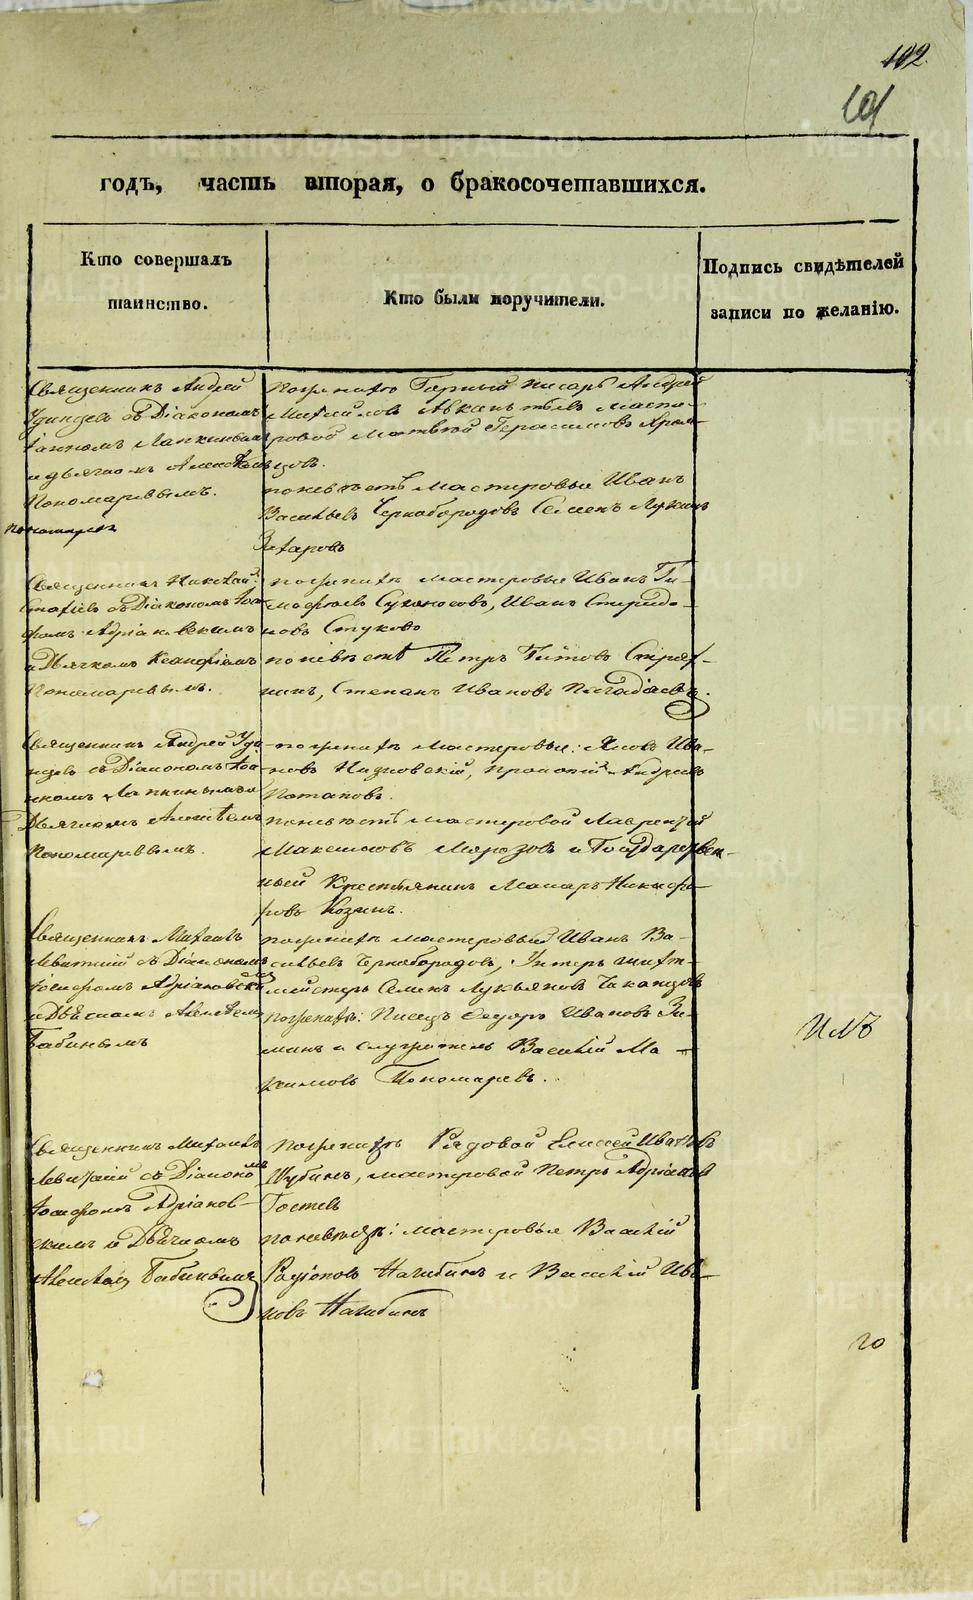 102.
101
годъ, часть вторая, о бракосочетавшихся.
Кто совершалъ
таинство.
Кто были поручители.
Подпись свидѣтелей
записи по желанію.
Священникъ Андрей
Удинцевъ съ Діакономъ
Іанномъ Лапкинымъ
и дьячкомъ Алексѣемъ
Пономаревымъ.
по женихѣ Горный писарь Андрей
Михайловъ масте-
ровой Матвѣй Герасимовъ Хром-
цовъ.
по невѣстѣ мастеровые Иванъ
Васильевъ Чернобородовъ Семенъ Лукинъ
Захаровъ
Священникъ Николай
съ Діакономъ Іоси-
фомъ Адріановскимъ
и Дьячкомъ Ксенофонтомъ
Пономаревымъ.
по женихѣ мастеровые Иванъ Ти-
мофѣевъ Сухоносовъ, Иванъ Спиридо-
новъ Стуковъ
по невѣстѣ Петръ Титовъ
Степанъ Ивановъ
Священникъ Андрей Уди-
нцевъ съ Діакономъ Іоа-
нномъ Лапкинымъ и
Дьячкомъ Алексѣемъ
Пономаревымъ.
по женихѣ мастеровые: Яковъ Ива-
новъ Низковскій, Прокопій Андреевъ
Потаповъ.
по невѣстѣ мастеровой Лаврентій
Максимовъ Морозовъ и Государствен-
ный Крестьянинъ Макаръ Никифо-
ровъ Козинъ.
Священникъ Михаилъ
Левитскій съ Діакономъ
Іосифомъ Адріановски
и Дьячкомъ Алексѣемъ
Бабинымъ
по женихѣ мастеровый Иванъ Ва-
сильевъ Чернобородовъ, Унтеръ шихт-
мейстеръ Семенъ Лукьяновъ
по женихѣ: Писецъ Ѳедоръ Ивановъ Зи-
минъ и служитель Василій Ма-
ксимовъ Пономаревъ.
Священникъ Михаилъ
Левитскій съ Діакономъ
Іосифомъ Адріанов-
скимъ и Дьячкомъ
Алексѣемъ Бабинымъ
по женихѣ Рядовой Елисей Ивановъ
Шубинъ, мастеровой Петръ Адріановъ
Гостевъ
по невѣстѣ: мастеровые Василій
Родіоновъ Нагибинъ и Василій Ива-
новъ Нагибинъ
20